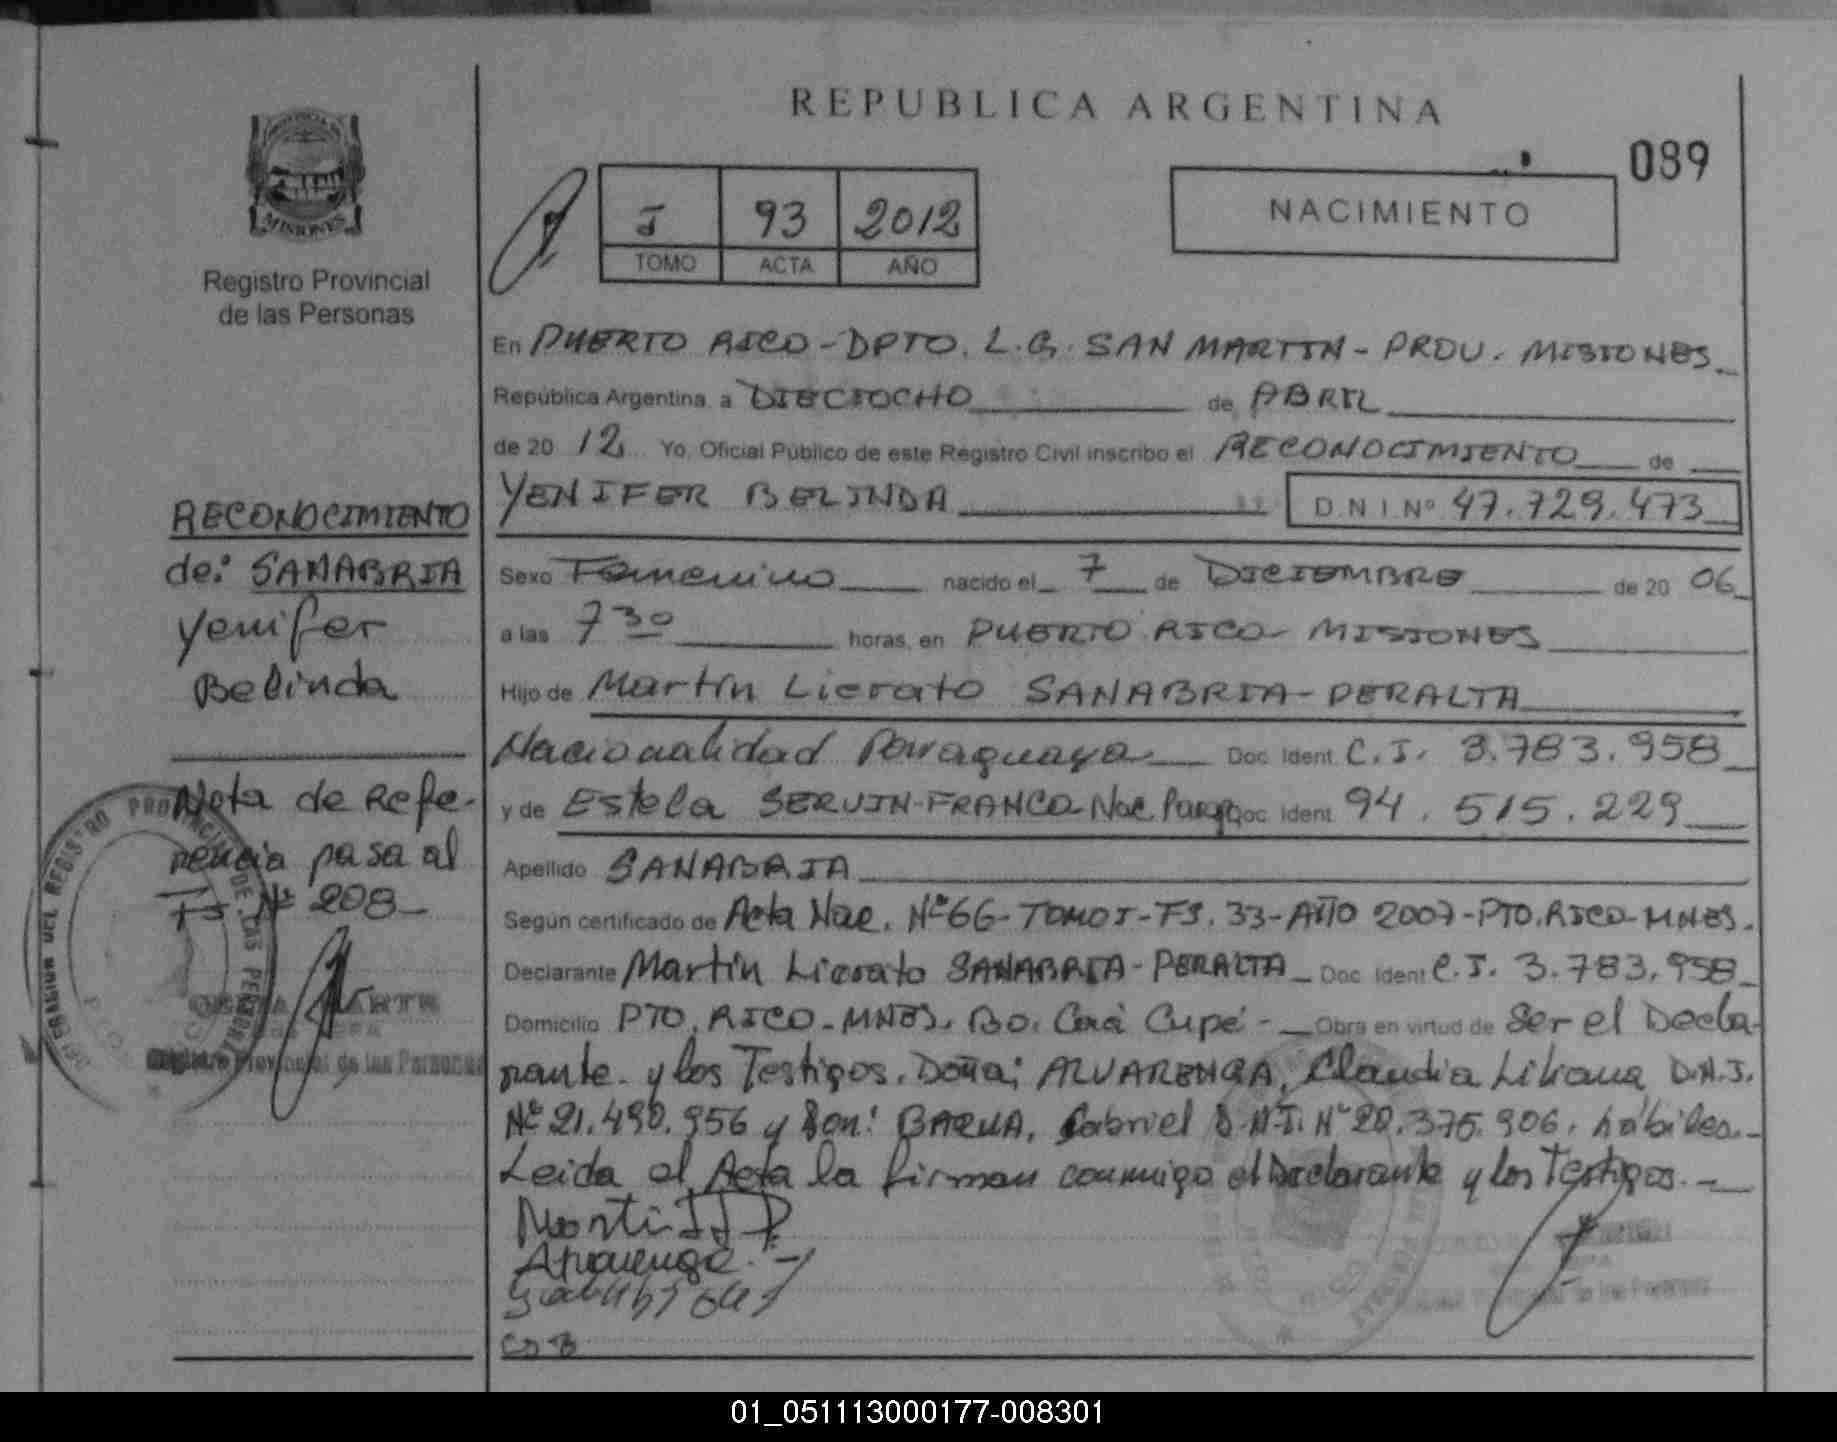 REPUBLICA ARGENTINA
089
I 93 2012
TOMO ACTA AÑO
NACIMIENTO
MISIONES
Registro Provincial
de las Personas
En PUERTO RICO - DPTO. L.G. SAN MARTIN - PROV. MISIONES
República Argentina, a DIECIOCHO de ABRIL
de 20 12 Yo, Oficial Público de este Registro Civil inscribo el RECONOCIMIENTO de
YENIFER BELINDA D.N.I. Nº 47.729.473
Sexo Femenino nacido el 7 de DICIEMBRE de 20 06
a las 7 30 horas, en PUERTO RICO - MISIONES
Hijo de Martín Licrato SANABRIA - PERALTA
Nacionalidad Paraguaya Doc. Ident. C.I. 3.783.958
y de Estela SERVIN-FRANCO - Nac. Parag. Doc. Ident. 94.515.229
Apellido SANABRIA
Según certificado de Acta Nac. Nº 66 - TOMO I - FS. 33 - AÑO 2007 - PTO. RICO - MNES.
Declarante Martín Licrato SANABRIA - PERALTA Doc. Ident. C.I. 3.783.958
Domicilio PTO. RICO - MNES. Bo. Corá Cupé - Obra en virtud de Ser el Decla-
rante y los Testigos. Doña: ALVARENGA, Claudia Liliana D.N.I.
Nº 21.490.956 y Don: BARUA, Gabriel D.N.I. Nº 20.375.906, hábiles.-
Leida el Acta la firman conmigo el Declarante y los Testigos. -
RECONOCIMIENTO
de: SANABRIA
Yenifer
Belinda
Nota de Refe-
rencia pasa al
FS Nº 208 -
Registro Provincial de las Personas
01_051113000177-008301